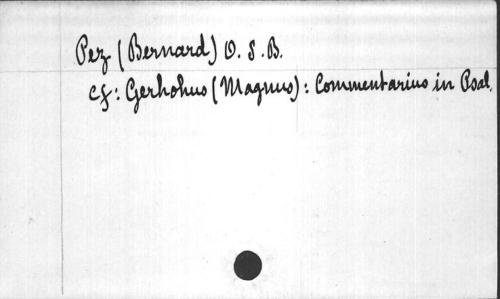 Pez (Bernard) O. S. B.
cf: Gerhohus (Magnus): Commentarius in Psal.